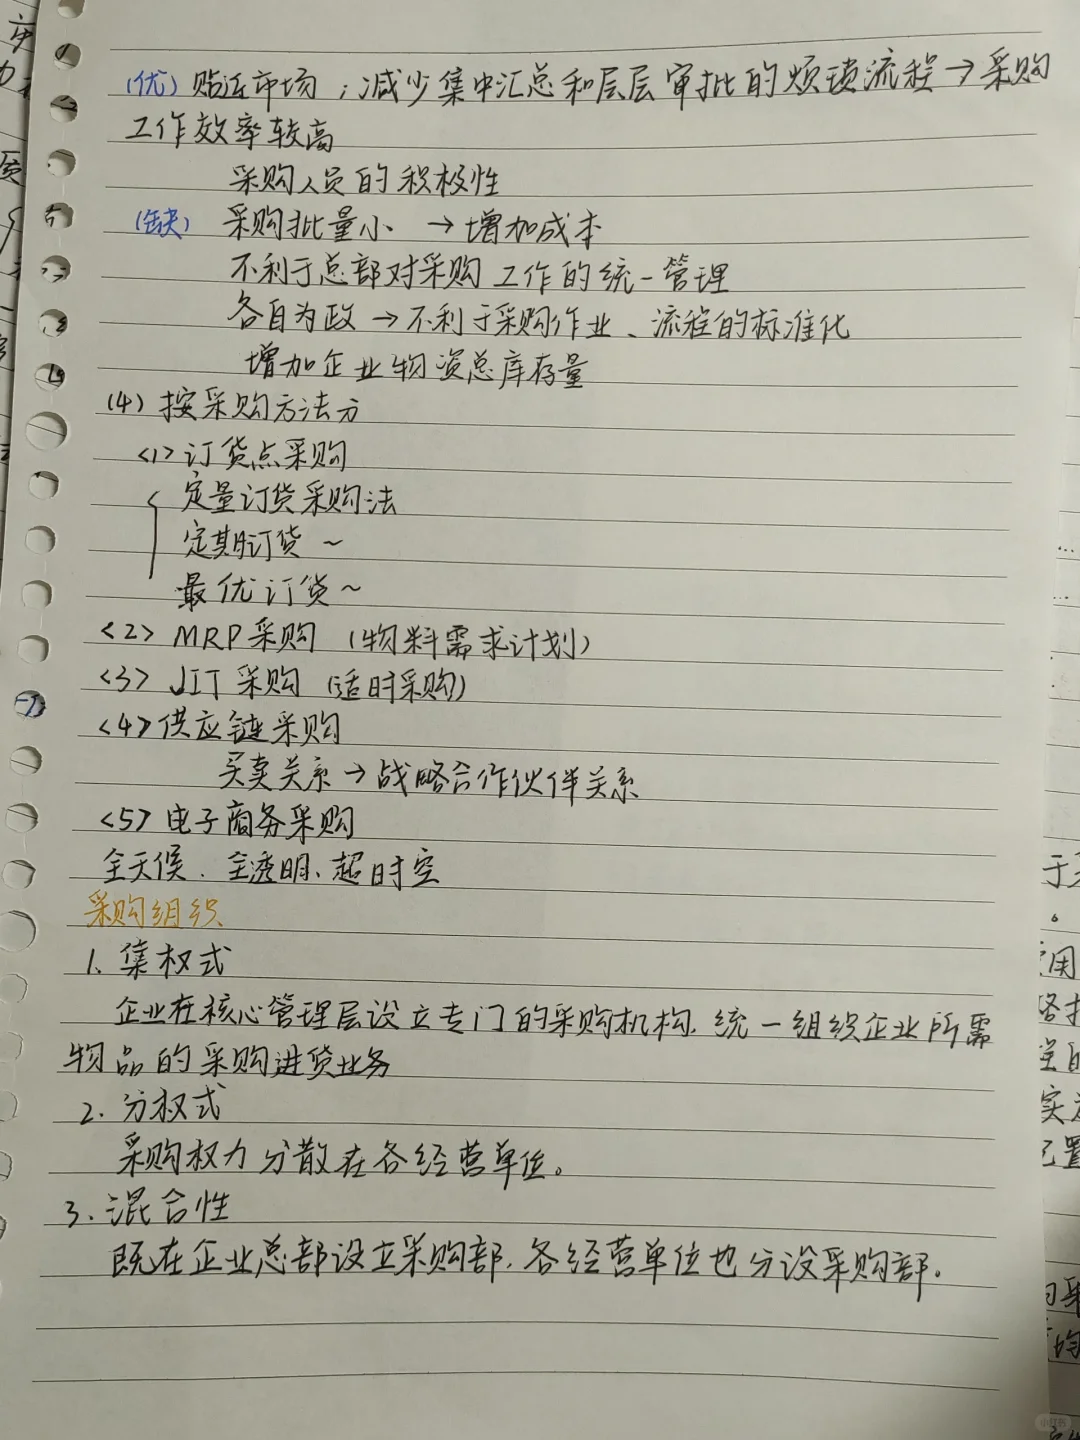 (优) 贴近市场；减少集中汇总和层层审批的烦琐流程→采购
工作效率较高
采购人员的积极性
(缺) 采购批量小 →增加成本
不利于总部对采购工作的统一管理
各自为政→不利于采购作业、流程的标准化
增加企业物资总库存量
(4) 按采购方法分
<1>订货点采购
定量订货采购法
定期订货～
最优订货～
<2> MRP采购 (物料需求计划)
<3> JIT采购 (适时采购)
<4>供应链采购
买卖关系→战略合作伙伴关系
<5>电子商务采购
全天候、全透明、超时空
采购组织
1、集权式
企业在核心管理层设立专门的采购机构，统一组织企业所需
物品的采购进货业务
2. 分权式
采购权力分散在各经营单位。
3. 混合性
既在企业总部设立采购部，各经营单位也分设采购部。
小红书